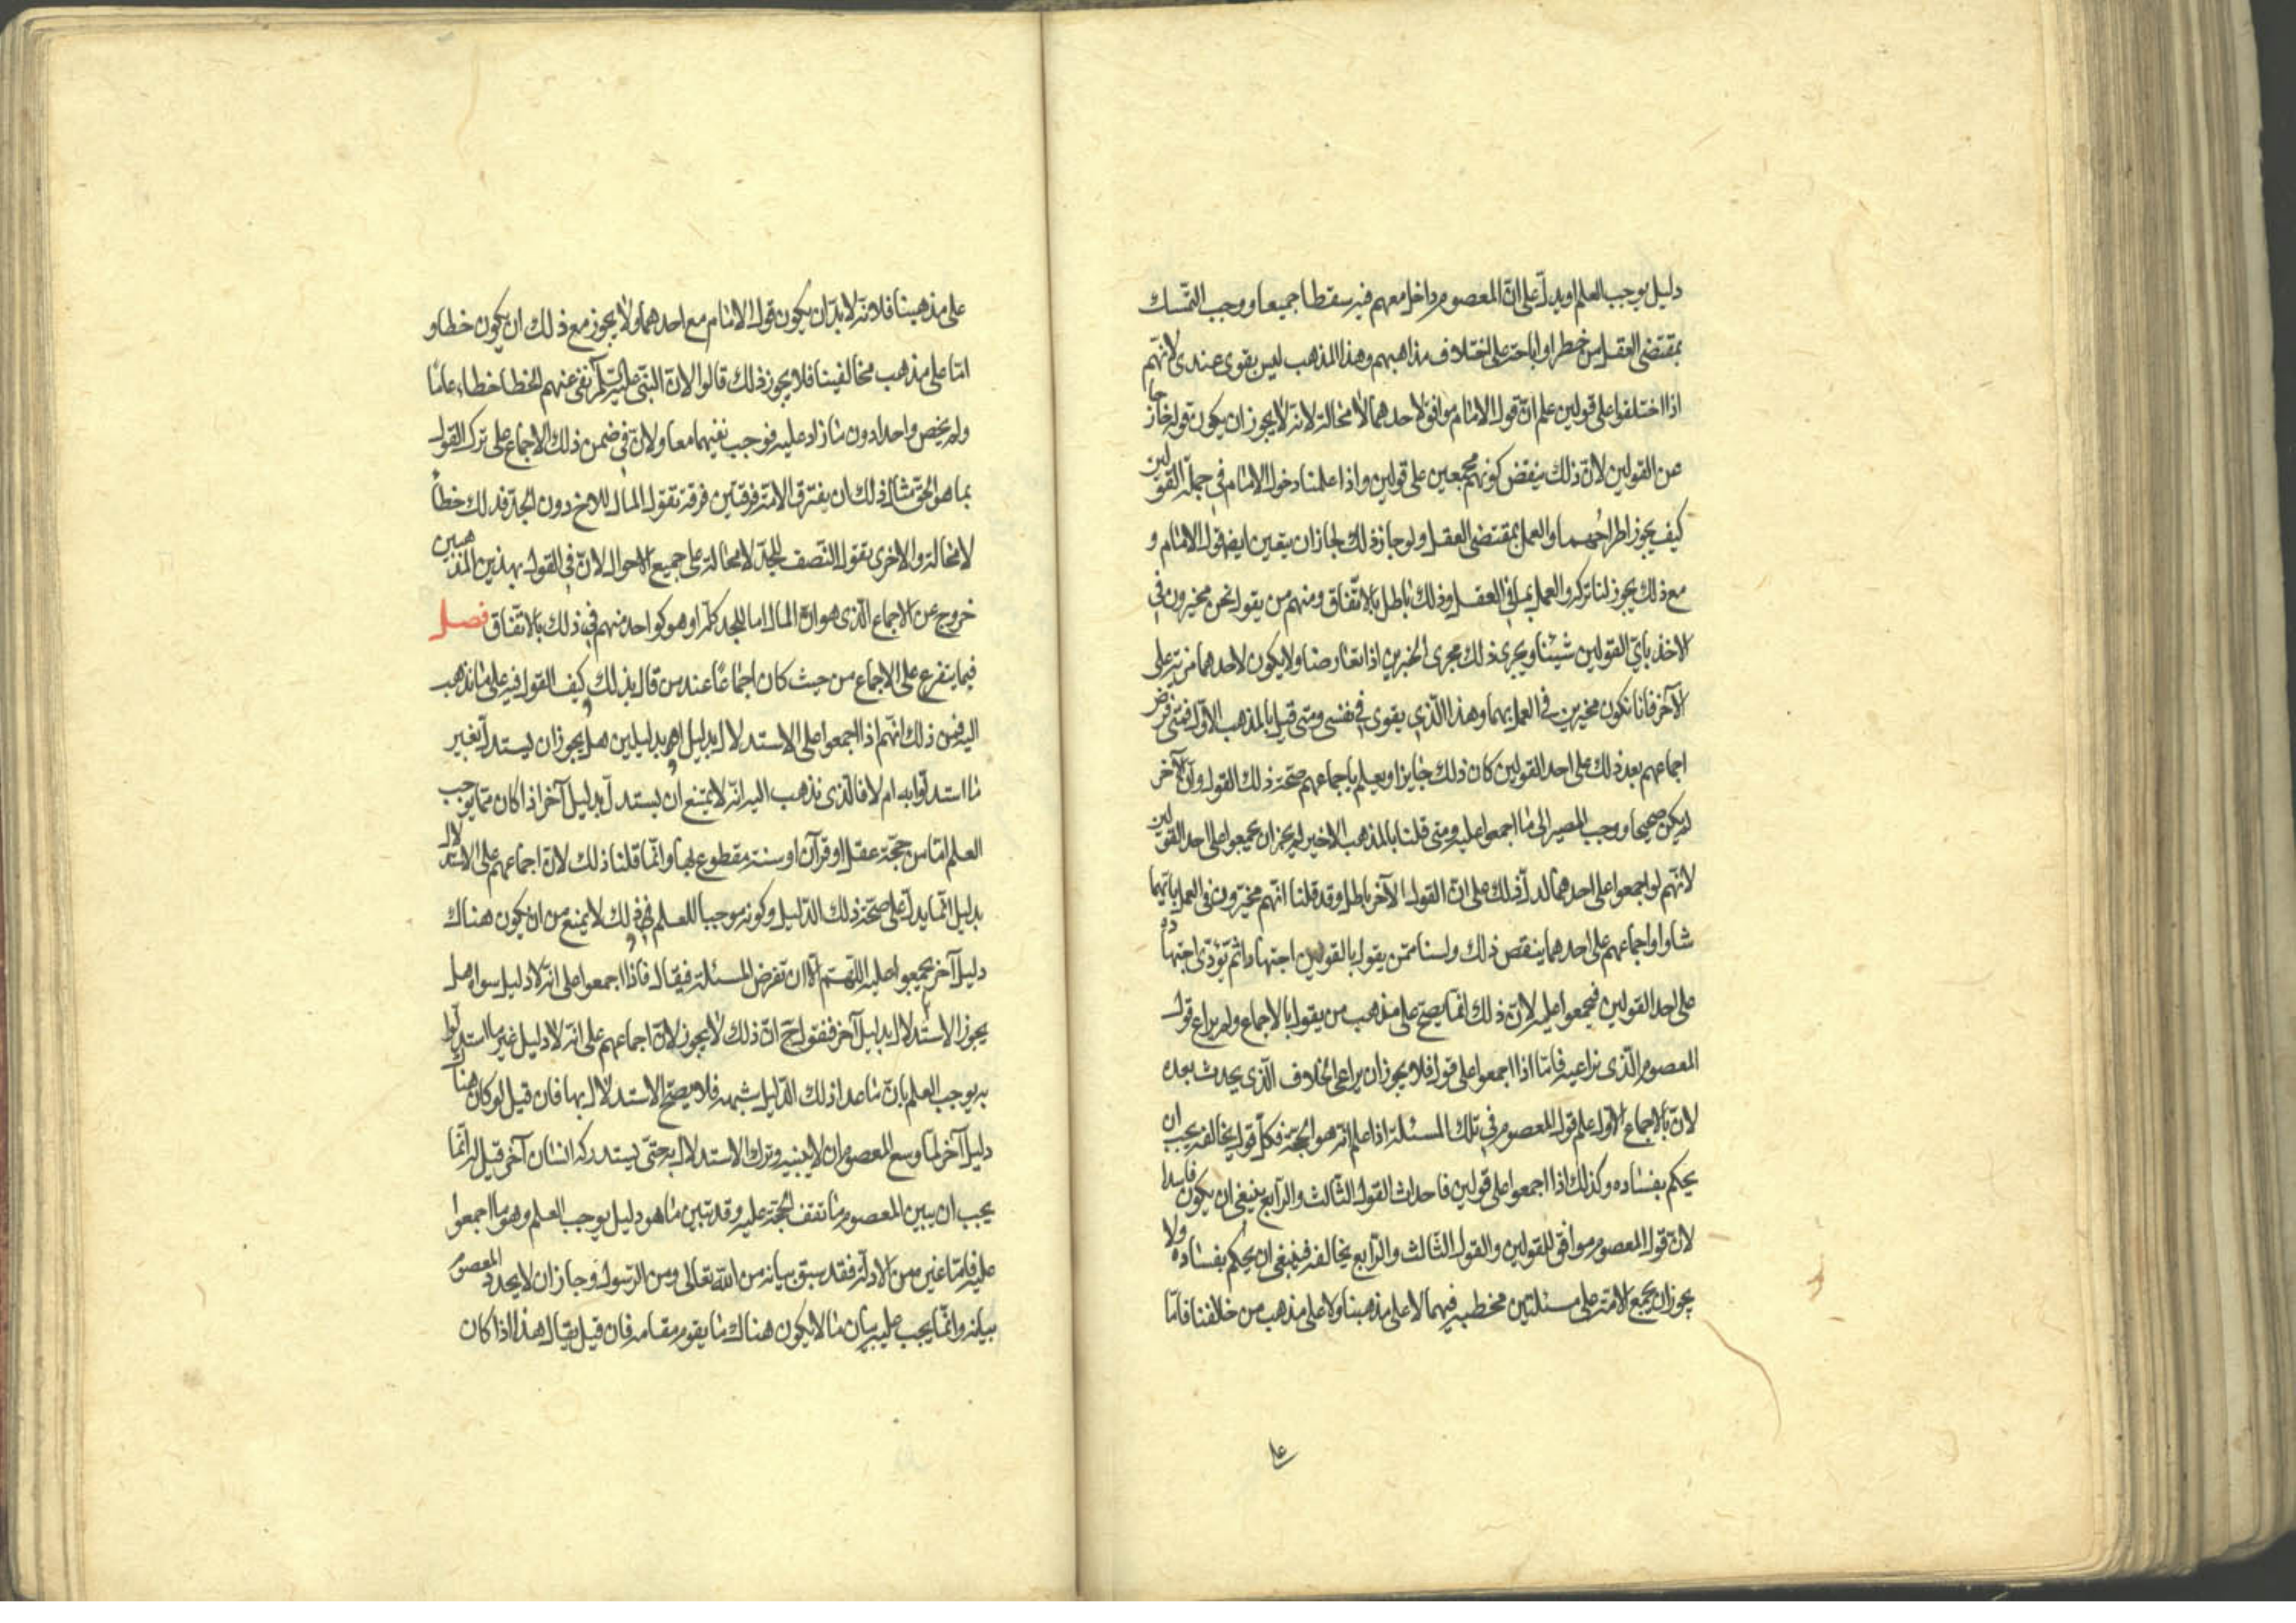 دليل يوجب العلم او يدلّ على انّ المعصوم داخل معهم فيه سقطا جميعا ووجب التمّسك
بمقتضى العقل من خطر او اباحة على اختلاف مذاهبهم وهذا المذهب ليس بقوى عندى لانهّم
اذا اختلفوا على قولين علم انّ قول الامام موافق لاحدهما لا محالة لانه لا يجوز ان يكون قوله خارجا
عن القولين لانّ ذلك ينقض كونهم مجمعين على قولين واذا علمنا دخول الامام في جملة القولين
كيف يجوز اطراحهما والعمل بمقتضى العقل ولو جاز ذلك لجاز ان يتعين ايضا قول الامام و
مع ذلك يجوز لنا تركه والعمل بما في العقل وذلك باطل بالاتّفاق ومنهم من يقول نحن مخيرون في
الاخذ باىّ القولين شيئنا ويجرى ذلك مجرى الخبرين اذا تعارضا ولا يكون لاحدهما مزيّة على
الآخر فانا نكون مخيرين في العمل بهما وهذا الّذي يقوى في نفسى ومتى قيل بالمذهب الاوّل فمتى فرض
اجماعهم بعد ذلك على احد القولين كان ذلك جايزا ويعلم باجماعهم صحّة ذلك القول وانّ الآخر
لم يكن صحيحا ووجب المصير الى ما اجمعوا عليه ومتى قلنا بالمذهب الاخير لم يجز ان يجمعوا على احد القولين
لانّهم لو اجمعوا على احدهما لدلّ ذلك على انّ القول الآخر باطل وقد قلنا انّهم مخيّرون في العمل بايّهما
شاوا واجماعهم على احدهما ينقض ذلك ولسنا ممّن يقول بالقولين اجتهادا ثم يؤدّى اجتهاده
على احد القولين فيجمعوا عليه لانّ ذلك انّما يصحّ على مذهب من يقول بالاجماع ولم يراع قول
المعصوم الّذى نراعيه فامّا اذا اجمعوا على قول فلا يجوز ان يراعى الخلاف الّذى يحدث بعده
لانّ بالاجماع الاول علم قول المعصوم في تلك المسئلة اذا علم انه هو الحجّة فكلّ قول يخالفه يجب ان
يحكم بفساده وكذلك اذا اجمعوا على قولين فاحداث القول الثّالث والرّابع ينبغى ان يكون فاسدا
لانّ قول المعصوم موافق للقولين والقول الثّالث والرّابع يخالفه فينبغى ان يحكم بفساده ولا
يجوز ان يجمع الامّة على مسئلتين مخطيه فيهما لا على مذهبنا ولا على مذهب من خالفنا فامّا
على مذهبنا فلانّه لا بدّ ان يكون قول الامام مع احدهما ولا يجوز مع ذلك ان يكون خطا و
امّا على مذهب مخالفينا فلا يجوز ذلك قالوا لانّ النبّى عليه السّلم نفى عنهم الخطا خطاء عامّا
ولم يخص واحدا دون ما زاد عليه فوجب نفيهما معا ولانّ في ضمن ذلك الاجماع على ترك القول
بما هو الحقّ مثال ذلك ان يفترق الامّة فرقتين فرقة تقول المال للاخ دون الجدّ فذلك خطأ
لا محالة والاخرى تقول النّصف للجدّ لا محالة على جميع الاحوال لانّ في القول بهذين المذهبين
خروج عن الاجماع الّذى هو انّ المال اما للجد كلّه او هو كواحد منهم في ذلك بالاتّفاق فصل
فيما يتفرع على الاجماع من حيث كان اجماعًا عند من قال بذلك وكيف القول فيه على ما نذهب
اليه فمن ذلك انّهم اذا اجمعوا على الاستدلال بدليل او بدليلين هل يجوز ان يستدلّ بغير
ما استدلّوا به ام لا فالّذى نذهب اليه انّه لا يمتنع ان يستدلّ بدليل آخر اذا كان ممّا يوجب
العلم امّا من حجّة عقل او قرآن او سنة مقطوع بها وانّما قلنا ذلك لانّ اجماعهم على الاستدلال
بدليل انّما يدلّ على صحّة ذلك الدّليل وكونه موجبا للعلم وذلك لا يمنع من ان يكون هناك
دليل آخر لم يجمعوا عليه اللّهم الّا ان تفرض المسئلة فيقال فاذا اجمعوا على انّه لا دليل سواه هل
يجوز الاستدلال بدليل آخر فنقول ح انّ ذلك لا يجوز لانّ اجماعهم على انّه لا دليل غير ما استدلّوا
به يوجب العلم بانّ ما عدا ذلك الدّليل شبهة فلا يصحّ الاستدلال بها فان قيل لو كان هناك
دليل آخر لما وسع المعصوم ان لا يبينه وترك الاستدلال به حتّى يستدركه انسان آخر قيل له انّما
يجب ان يبين المعصوم ما تقف الحجّة عليه وقد تبين ما هو دليل يوجب العلم وهو ما اجمعوا
عليه فامّا غيره من الادلّة فقد سبق بيانه من الله تعالى ومن الرّسول وجاز ان لا يجدد المعصوم
بيانه وانّما يجب عليه بيان ما لا يكون هناك ما يقوم مقامه فان قيل يقال هذا اذا كان